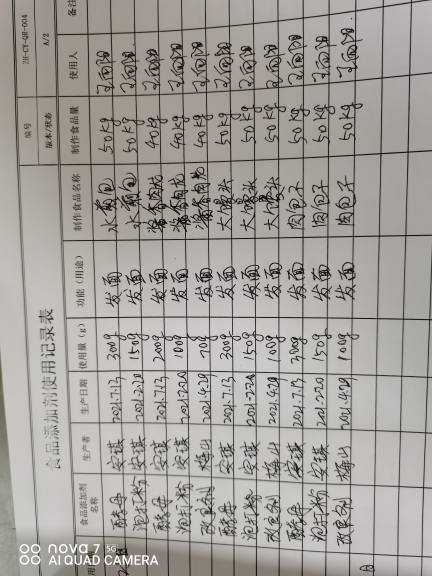 食品添加剂使用记录表
编号 ZH-CY-QR-004
版本/状态 A/2
食品添加剂名称 生产者 生产日期 使用量(g) 功能(用途) 制作食品名称 制作食品量 使用人 备注
酵母 安琪 2021.7.13 300g 发面 水煎包 50kg
泡打粉 安琪 2021.2.20 150g 发面 水煎包 50kg
酵母 安琪 2021.7.13 200g 发面 酱香肉龙 40kg
泡打粉 安琪 2021.2.20 100g 发面 酱香肉龙 40kg
改良剂 梅山 2021.4.29 70g 发面 酱香肉龙 40kg
酵母 安琪 2021.7.13 300g 发面 大馒头 50kg
泡打粉 安琪 2021.2.20 150g 发面 大馒头 50kg
改良剂 梅山 2021.4.29 100g 发面 大馒头 50kg
酵母 安琪 2021.7.13 300g 发面 肉包子 50kg
泡打粉 安琪 2021.2.20 150g 发面 肉包子 50kg
改良剂 梅山 2021.4.29 100g 发面 肉包子 50kg
nova 7 5G
AI QUAD CAMERA